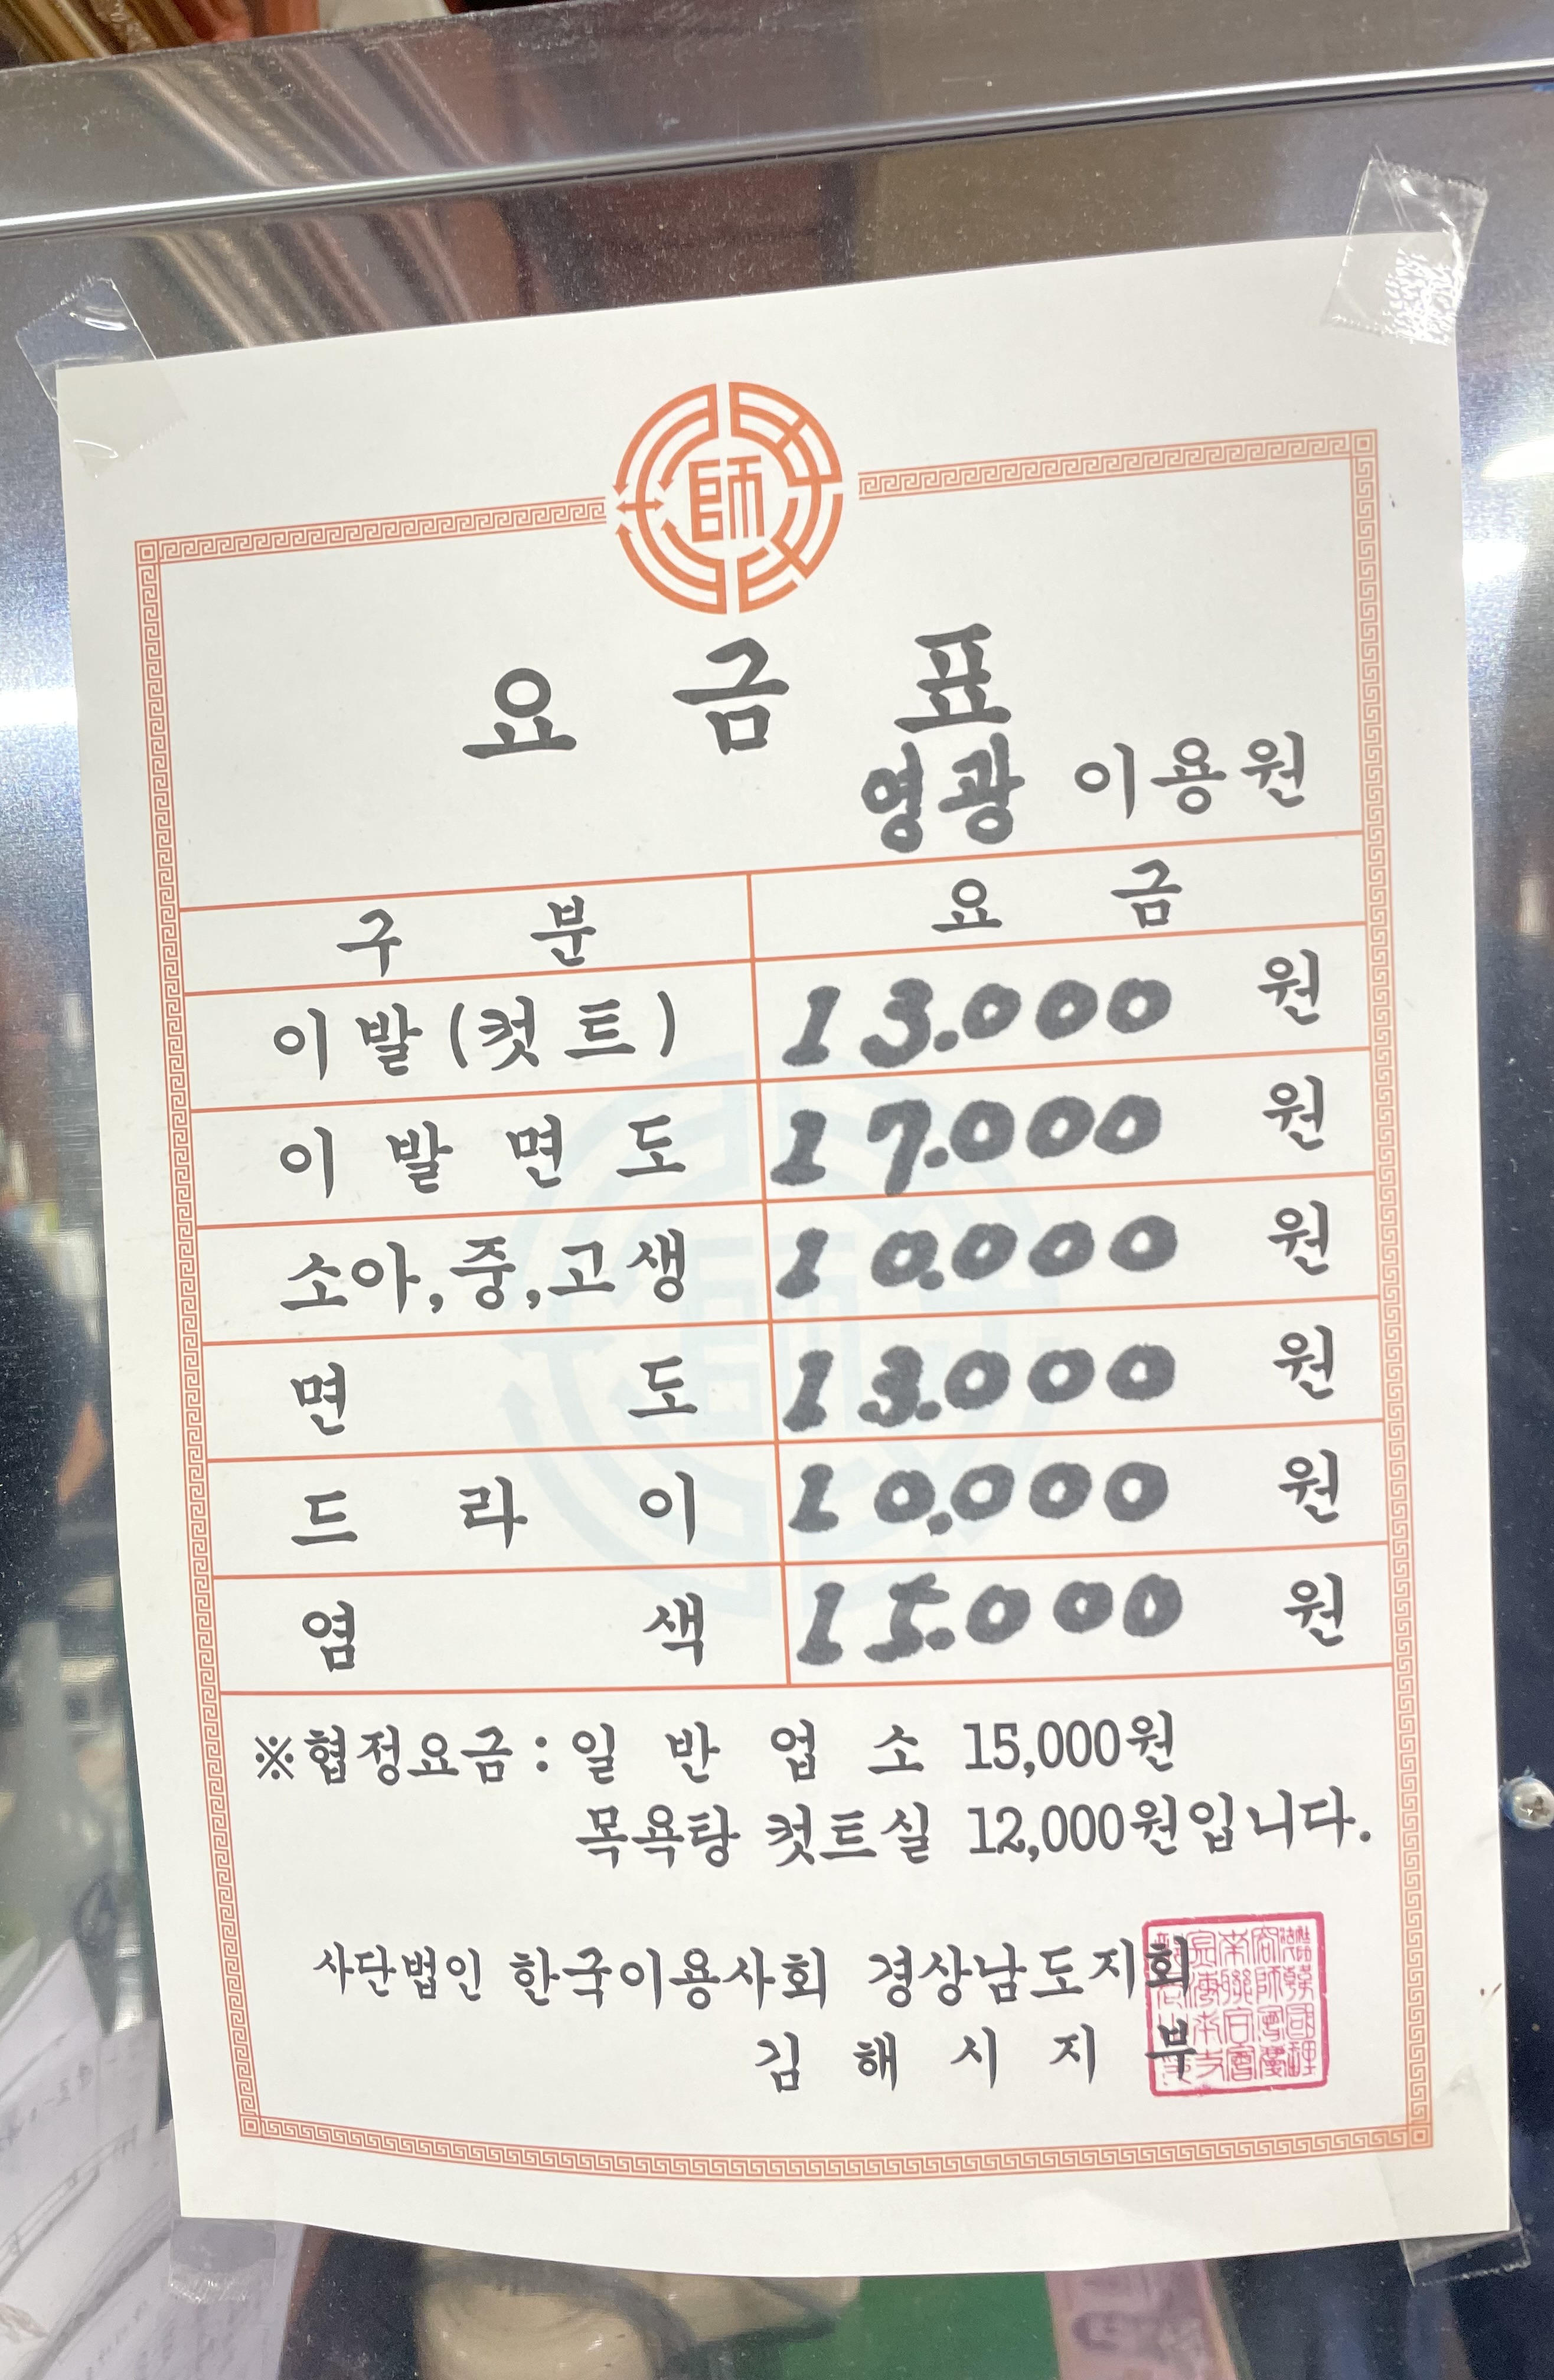 師
요 금 표
영광 이용원
구 분 요 금
이발(컷트) 13.000 원
이발면도 17.000 원
소아,중,고생 10.000 원
면도 13.000 원
드라이 10.000 원
염색 15.000 원
※협정요금 : 일 반 업 소 15,000원
목욕탕 컷트실 12,000원입니다.
사단법인 한국이용사회 경상남도지회
김 해 시 지 부